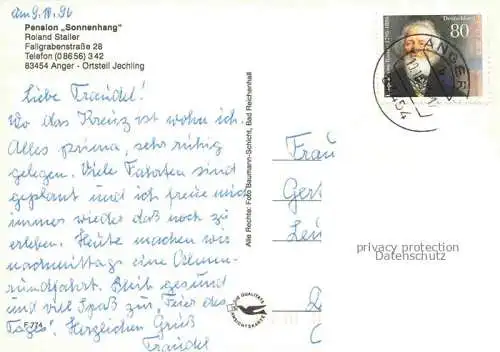 am 9. 10. 96
Pension „Sonnenhang"
Roland Staller
Fallgrabenstraße 28
Telefon (0 86 56) 3 42
83454 Anger - Ortsteil Jechling
Liebe Traudel!
Wo das Kreuz ist wohn ich.
Alles prima, sehr ruhig
gelegen. Viele Fahrten sind
geplant und ich freue mich
immer wieder daß noch zu
erleben. Heute machen wir
nachmittags eine
rundfahrt. Bleib gesund
und viel Spaß zur „Feier des
Tages“. Herzlichen Gruß
Traudel
F 774
Alle Rechte: Foto Baumann-Schicht, Bad Reichenhall
QUALITÄTS
ANSICHTSKARTE
Deutschland
80
ANGER
83454
Frau
Ger
privacy protection
Datenschutz